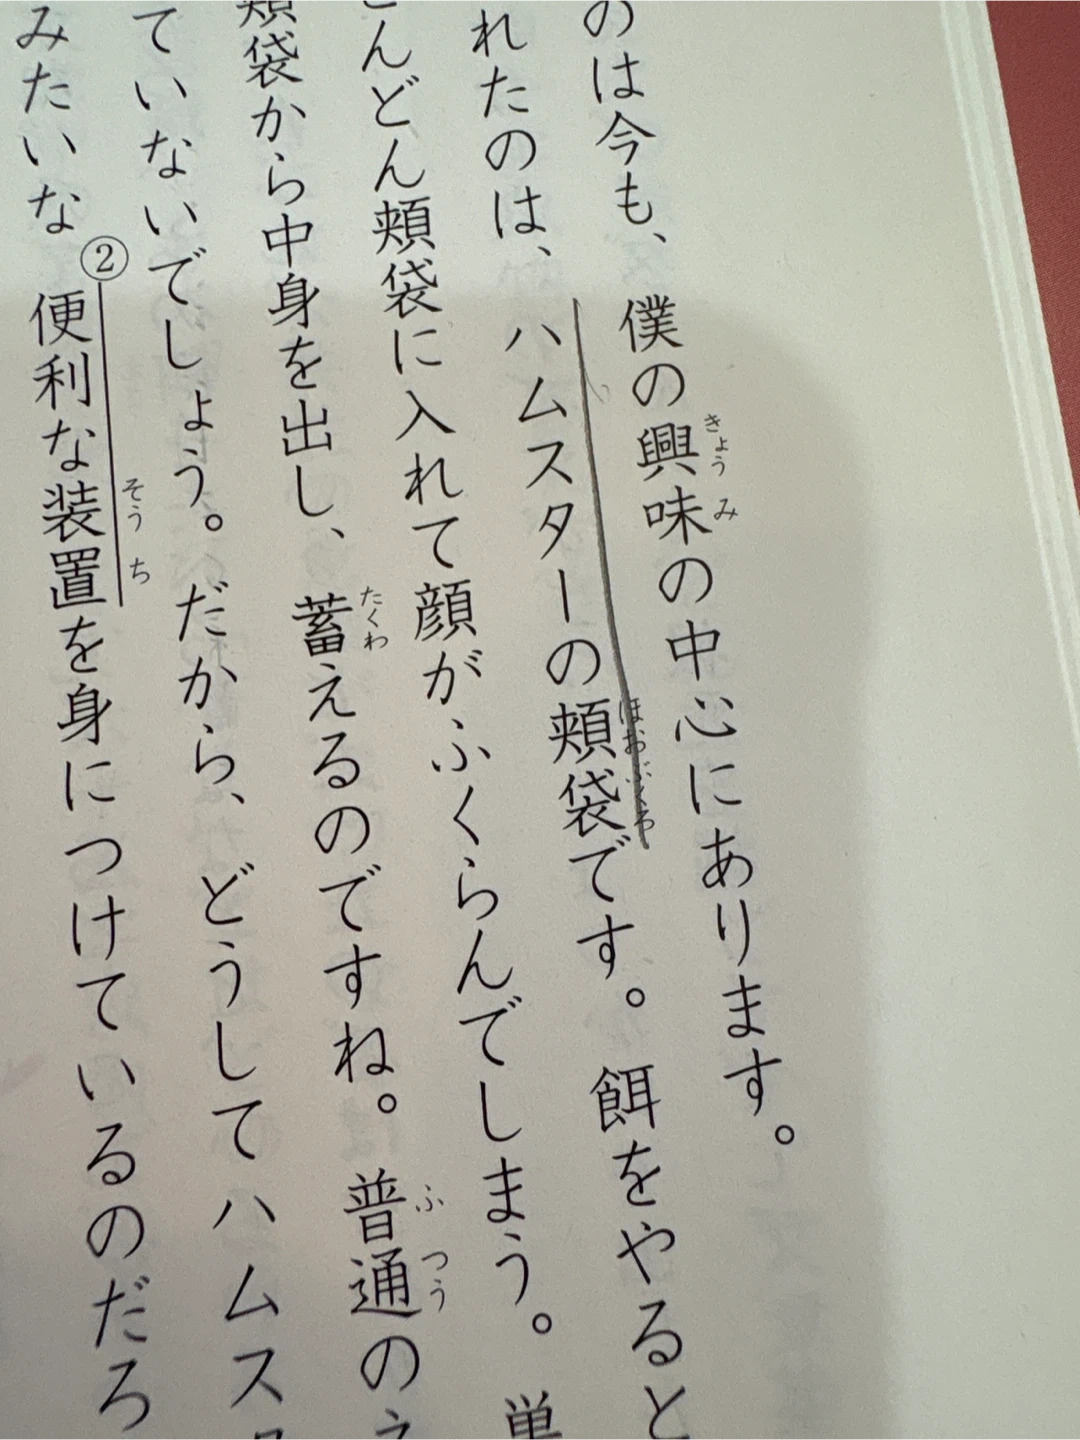 のは今も、僕の興味の中心にあります。
れたのは、ハムスターの頬袋です。餌をやると
どんどん頬袋に入れて顔がふくらんでしまう。巣
頬袋から中身を出し、蓄えるのですね。普通のネ
ていないでしょう。だから、どうしてハムスタ
みたいな②便利な装置を身につけているのだろ
きょうみ
ほおぶくろ
たくわ
ふつう
そうち